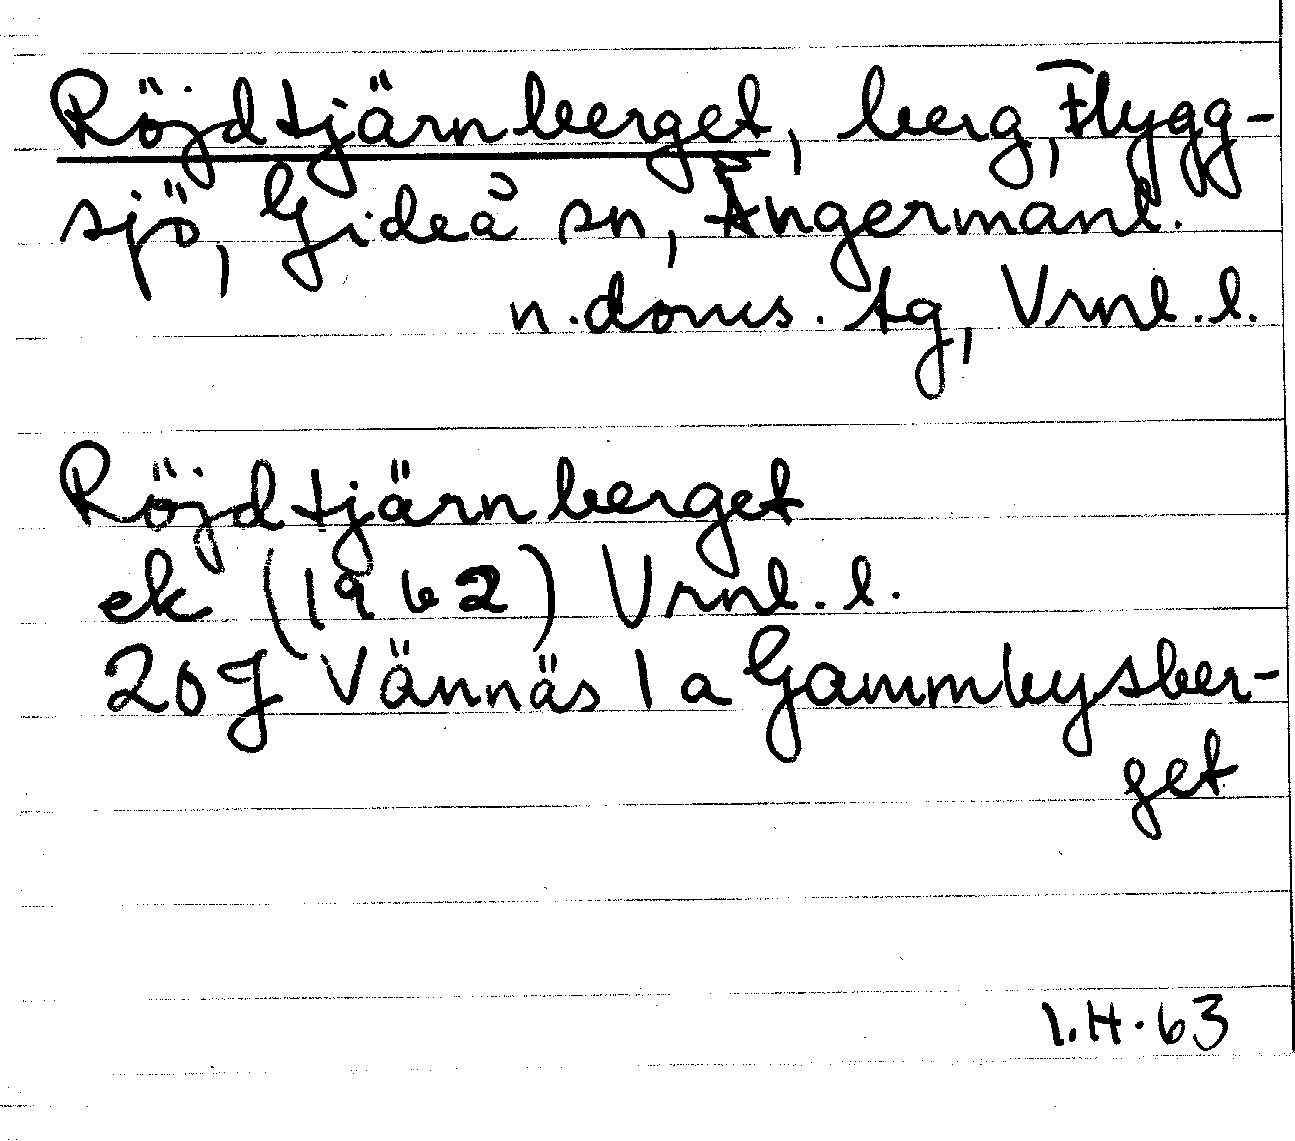 Röjdtjärnberget, berg, Flygg-
sjö, Gideå sn, Ångermanl.
n. doms. tg, Vrnl. l.
Röjdtjärnberget
ek (1962) Vrnl. l.
20J Vännäs 1a Gammbysber-
get
I.H. 63